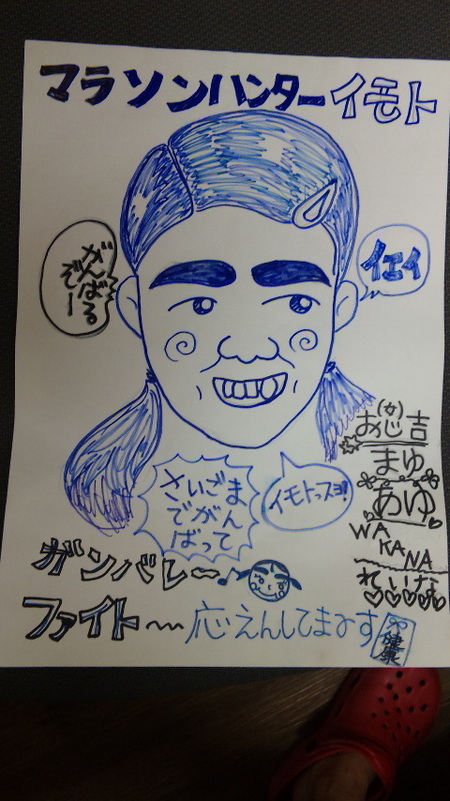 マラソンハンターイモト
がんばる
ぞー
イエイ
さいごま
でがん
ばって
イモトっスヨ!
お(か)じ吉
まゆ
あゆ
WA
KANA
れいな
ガンバレ〜♪
ファイト〜〜応えんしてまーす
健康